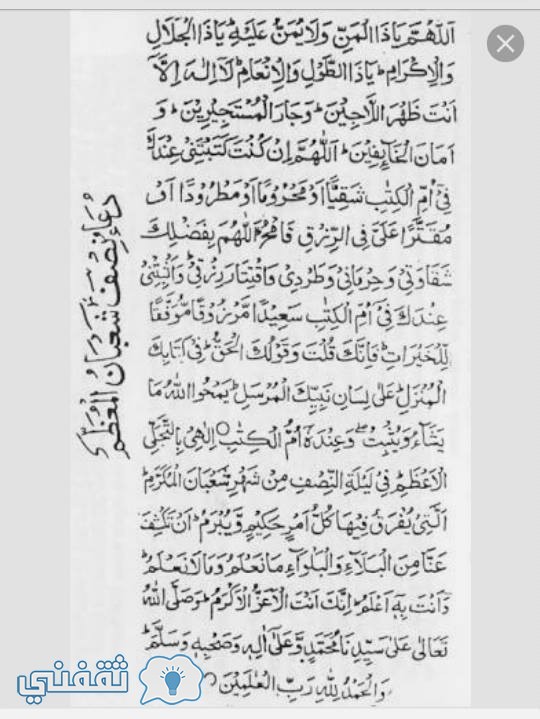 اَللّٰهُمَّ يَا ذَا الْمَنِّ وَلَا يُمَنُّ عَلَيْهِ يَا ذَا الْجَلَالِ
وَالْاِكْرَامِ يَا ذَا الطَّوْلِ وَالْاِنْعَامِ لَا اِلٰهَ اِلَّا
اَنْتَ ظَهْرَ اللَّاجِيْنَ وَجَارَ الْمُسْتَجِيْرِيْنَ وَ
اَمَانَ الْخَآئِفِيْنَ اَللّٰهُمَّ اِنْ كُنْتَ كَتَبْتَنِىْ عِنْدَكَ
فِىْ اُمِّ الْكِتٰبِ شَقِيًّا اَوْ مَحْرُوْمًا اَوْ مَطْرُوْدًا اَوْ
مُقَتَّرًا عَلَىَّ فِى الرِّزْقِ فَامْحُ اَللّٰهُمَّ بِفَضْلِكَ
شَقَاوَتِىْ وَحِرْمَانِىْ وَطَرْدِىْ وَاقْتِتَارَ رِزْقِىْ وَاَثْبِتْنِىْ
عِنْدَكَ فِىْ اُمِّ الْكِتٰبِ سَعِيْدًا مَّرْزُوْقًا مُّوَفَّقًا
لِلْخَيْرَاتِ فَاِنَّكَ قُلْتَ وَقَوْلُكَ الْحَقُّ فِىْ كِتَابِكَ
الْمُنْزَلِ عَلٰى لِسَانِ نَبِيِّكَ الْمُرْسَلِ يَمْحُوا اللّٰهُ مَا
يَشَآءُ وَيُثْبِتُ وَعِنْدَهٗ اُمُّ الْكِتٰبِ اِلٰهِىْ بِالتَّجَلِّى
الْاَعْظَمِ فِىْ لَيْلَةِ النِّصْفِ مِنْ شَهْرِ شَعْبَانَ الْمُكَرَّمِ
الَّتِىْ يُفْرَقُ فِيْهَا كُلُّ اَمْرٍ حَكِيْمٍ وَّيُبْرَمُ اَنْ تَكْشِفَ
عَنَّا مِنَ الْبَلَآءِ وَالْبَلْوَآءِ مَا نَعْلَمُ وَمَا لَا نَعْلَمُ
وَاَنْتَ بِهٖ اَعْلَمُ اِنَّكَ اَنْتَ الْاَعَزُّ الْاَكْرَمُ وَصَلَّى اللّٰهُ
تَعَالٰى عَلٰى سَيِّدِنَا مُحَمَّدٍ وَّعَلٰى اٰلِهٖ وَصَحْبِهٖ وَسَلَّمَ
وَالْحَمْدُ لِلّٰهِ رَبِّ الْعٰلَمِيْنَ
دُعَاءِ نِصْفِ شَعْبَانُ الْمُعَظَّم
ثقفني